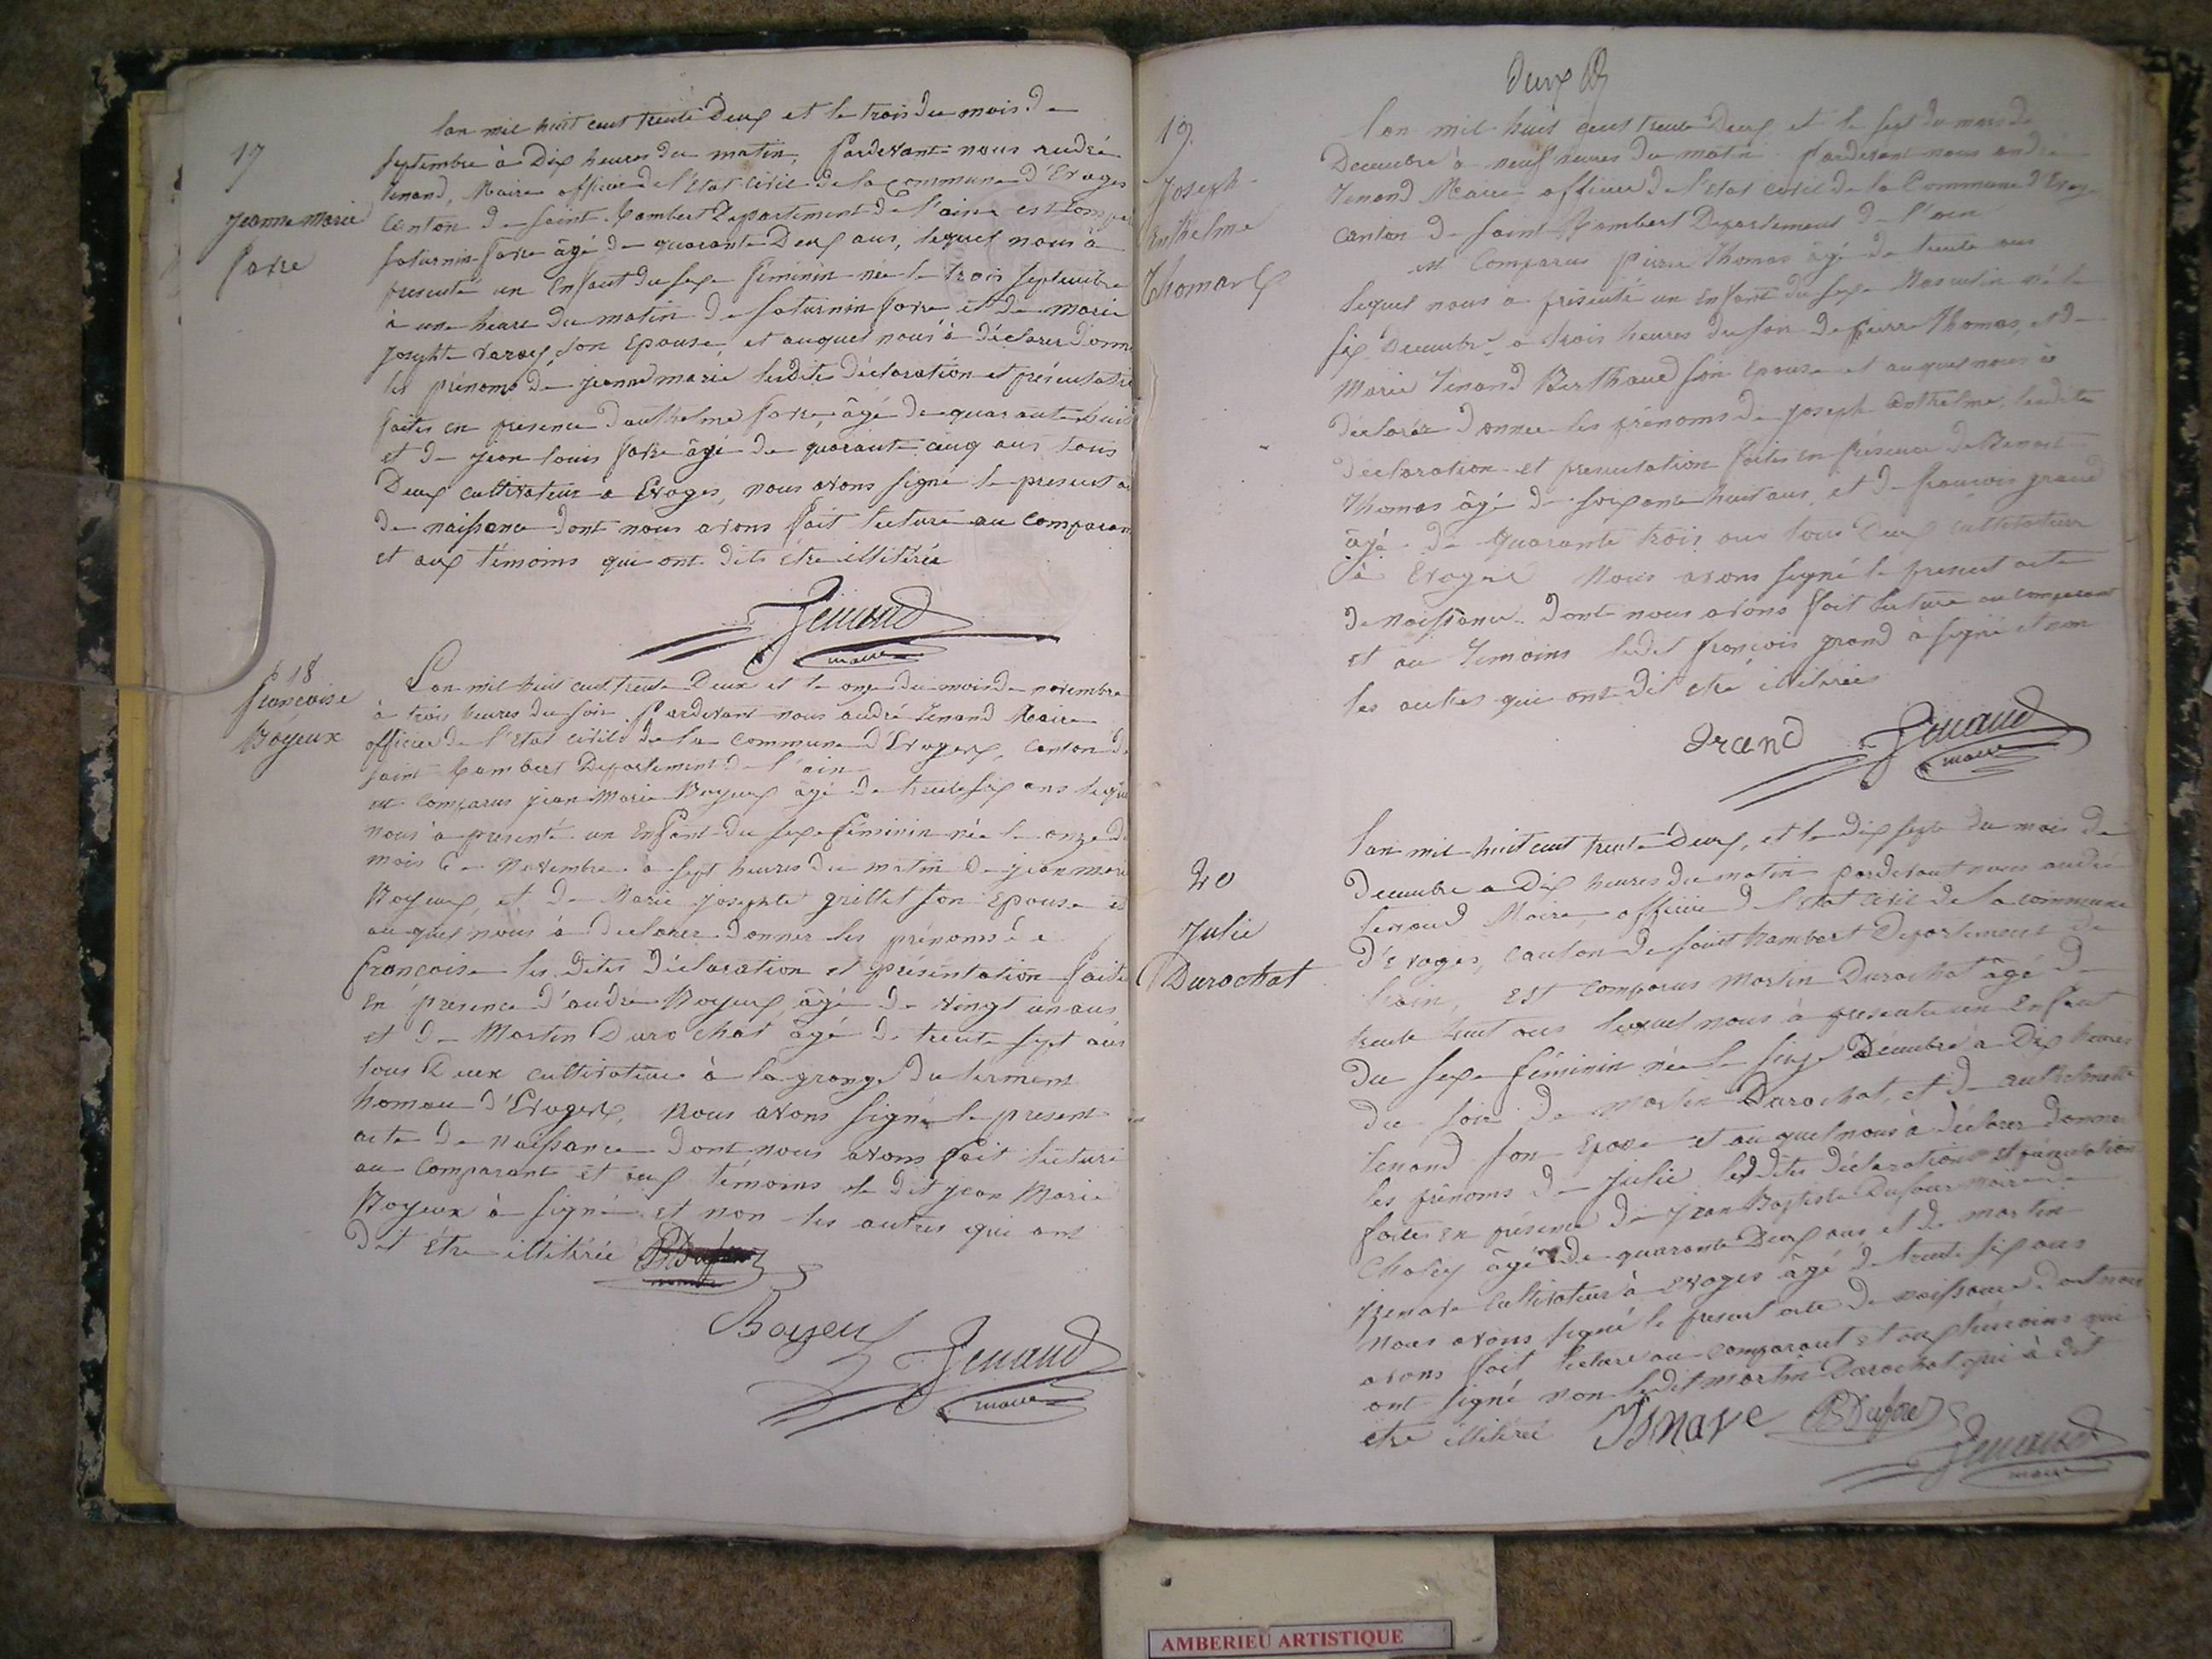 17
jeanne marie
favre
lan mil huit cent trente Deux et le trois du mois de
septembre à Dix heures du matin, Pardevant nous andré
Tenand, Maire officier de l'Etat Civil de la Commune d'Evoges
Canton de Saint Rambert Département de l'ain est Compa
saturnin favre âgé de quarante Deux ans, lequel nous à
presenté un Enfant du sexe féminin née le trois septembre
à une heure du matin de saturnin favre et de marie
josephte varay son Epouse, et auquel nous à déclarer donn
les prénoms de jeanne marie lesdites déclaration et présentatio
faites en presence d'anthelme favre, âgé de quarante huit
et de jean louis favre âgé de quarante cinq ans tous
Deux cultivateur à Evoges, nous avons signé le present a
de naissance dont nous avons fait lecture au comparan
et aux témoins qui ont dits être illitérée
Tenand
maire
18
françoise
Boyeux
L'an mil huit cent trente Deux et le onze du mois de novembre
à trois heures du soir Pardevant nous andré Tenand Maire
officier de l'Etat civile de la commune d'Evoges, canton de
saint Rambert Departement de l'ain
est comparus jean Marie Boyeux âgé de trente six ans lequel
nous à presenté un Enfant du sexe féminin née le onze du
mois de Novembre à sept heures du matin de jean marie
Boyeux, et de Marie josephte grillet son Epouse et
auquel nous à declarer donner les prénoms de
françoise les dites déclaration et présentation faite
en presence d'andré Boyeux, âgé de vingt un ans
et de Martin Durochat âgé de trente sept ans
tous Deux cultivateur à la grange du
hameau d'Evoges, Nous avons signé le present
acte de Naissance dont nous avons fait lecture
au comparant et aux témoins le dit jean Marie
Boyeux à signé et non les autres qui ons
dit être illitérée
Boyeux Tenand
maire
Deux
19.
Joseph
Anthelme
Thomas
l'an mil huit cent trente Deux et le sept du mois de
Decembre à neuf heures du matin Pardevant nous andré
Tenand Maire officier de l'etat civil de la Commune d'Evoges
canton de saint Rambert Departement de l'ain
est Comparus pierre Thomas âgé de trente ans
lequel nous a présenté un enfant du sexe Masculin né le
six Decembre à trois heures du soir de pierre Thomas, et de
Marie Tenand Berthaud son Epouse et auquel nous à
déclarer donner les prénoms de joseph anthelme, lesdites
déclaration et presentation faites en présence de Benoit
Thomas âgé de soixante huit ans, et de françois grand
âgé de quarante trois ans tous Deux cultivateur
à Evoges Nous avons signé le present acte
de Naissance dont nous avons fait lecture au comparant
et au Temoins ledit françois grand à signé et non
les autres qui ont dit etre illitérées
Grand Tenand
maire
20
Julie
Durochat
l'an mil huit cent trente Deux, et le dix sept du mois de
decembre a Dix heures du matin pardevant nous andré
Tenand Maire, officier de l'etat civil de la commune
d'Evoges, Canton de saint Rambert Departement de
l'ain, est comparus Martin Durochat âgé de
trente huit ans lequel nous à presenté un Enfant
du sexe féminin née le seize decembre à Dix heures
du soir de Martin Durochat, et de anthelmette
Tenand son Epouse et auquel nous à déclarer donner
les prénoms de Julie lesdites déclaration et présentation
faites en présence de jean Baptiste Dufour maire de
Chaley âgé de quarante Deux ans et de martin
Benave cultivateur à Evoges âgé de trente six ans
Nous avons signé le present acte de naissance dont nous
avons fait lecture au comparant et aux témoins qui
ont signé non ledit martin Durochat qui à dit
etre illitéré Benave Dufour
Tenand
maire
AMBERIEU ARTISTIQUE